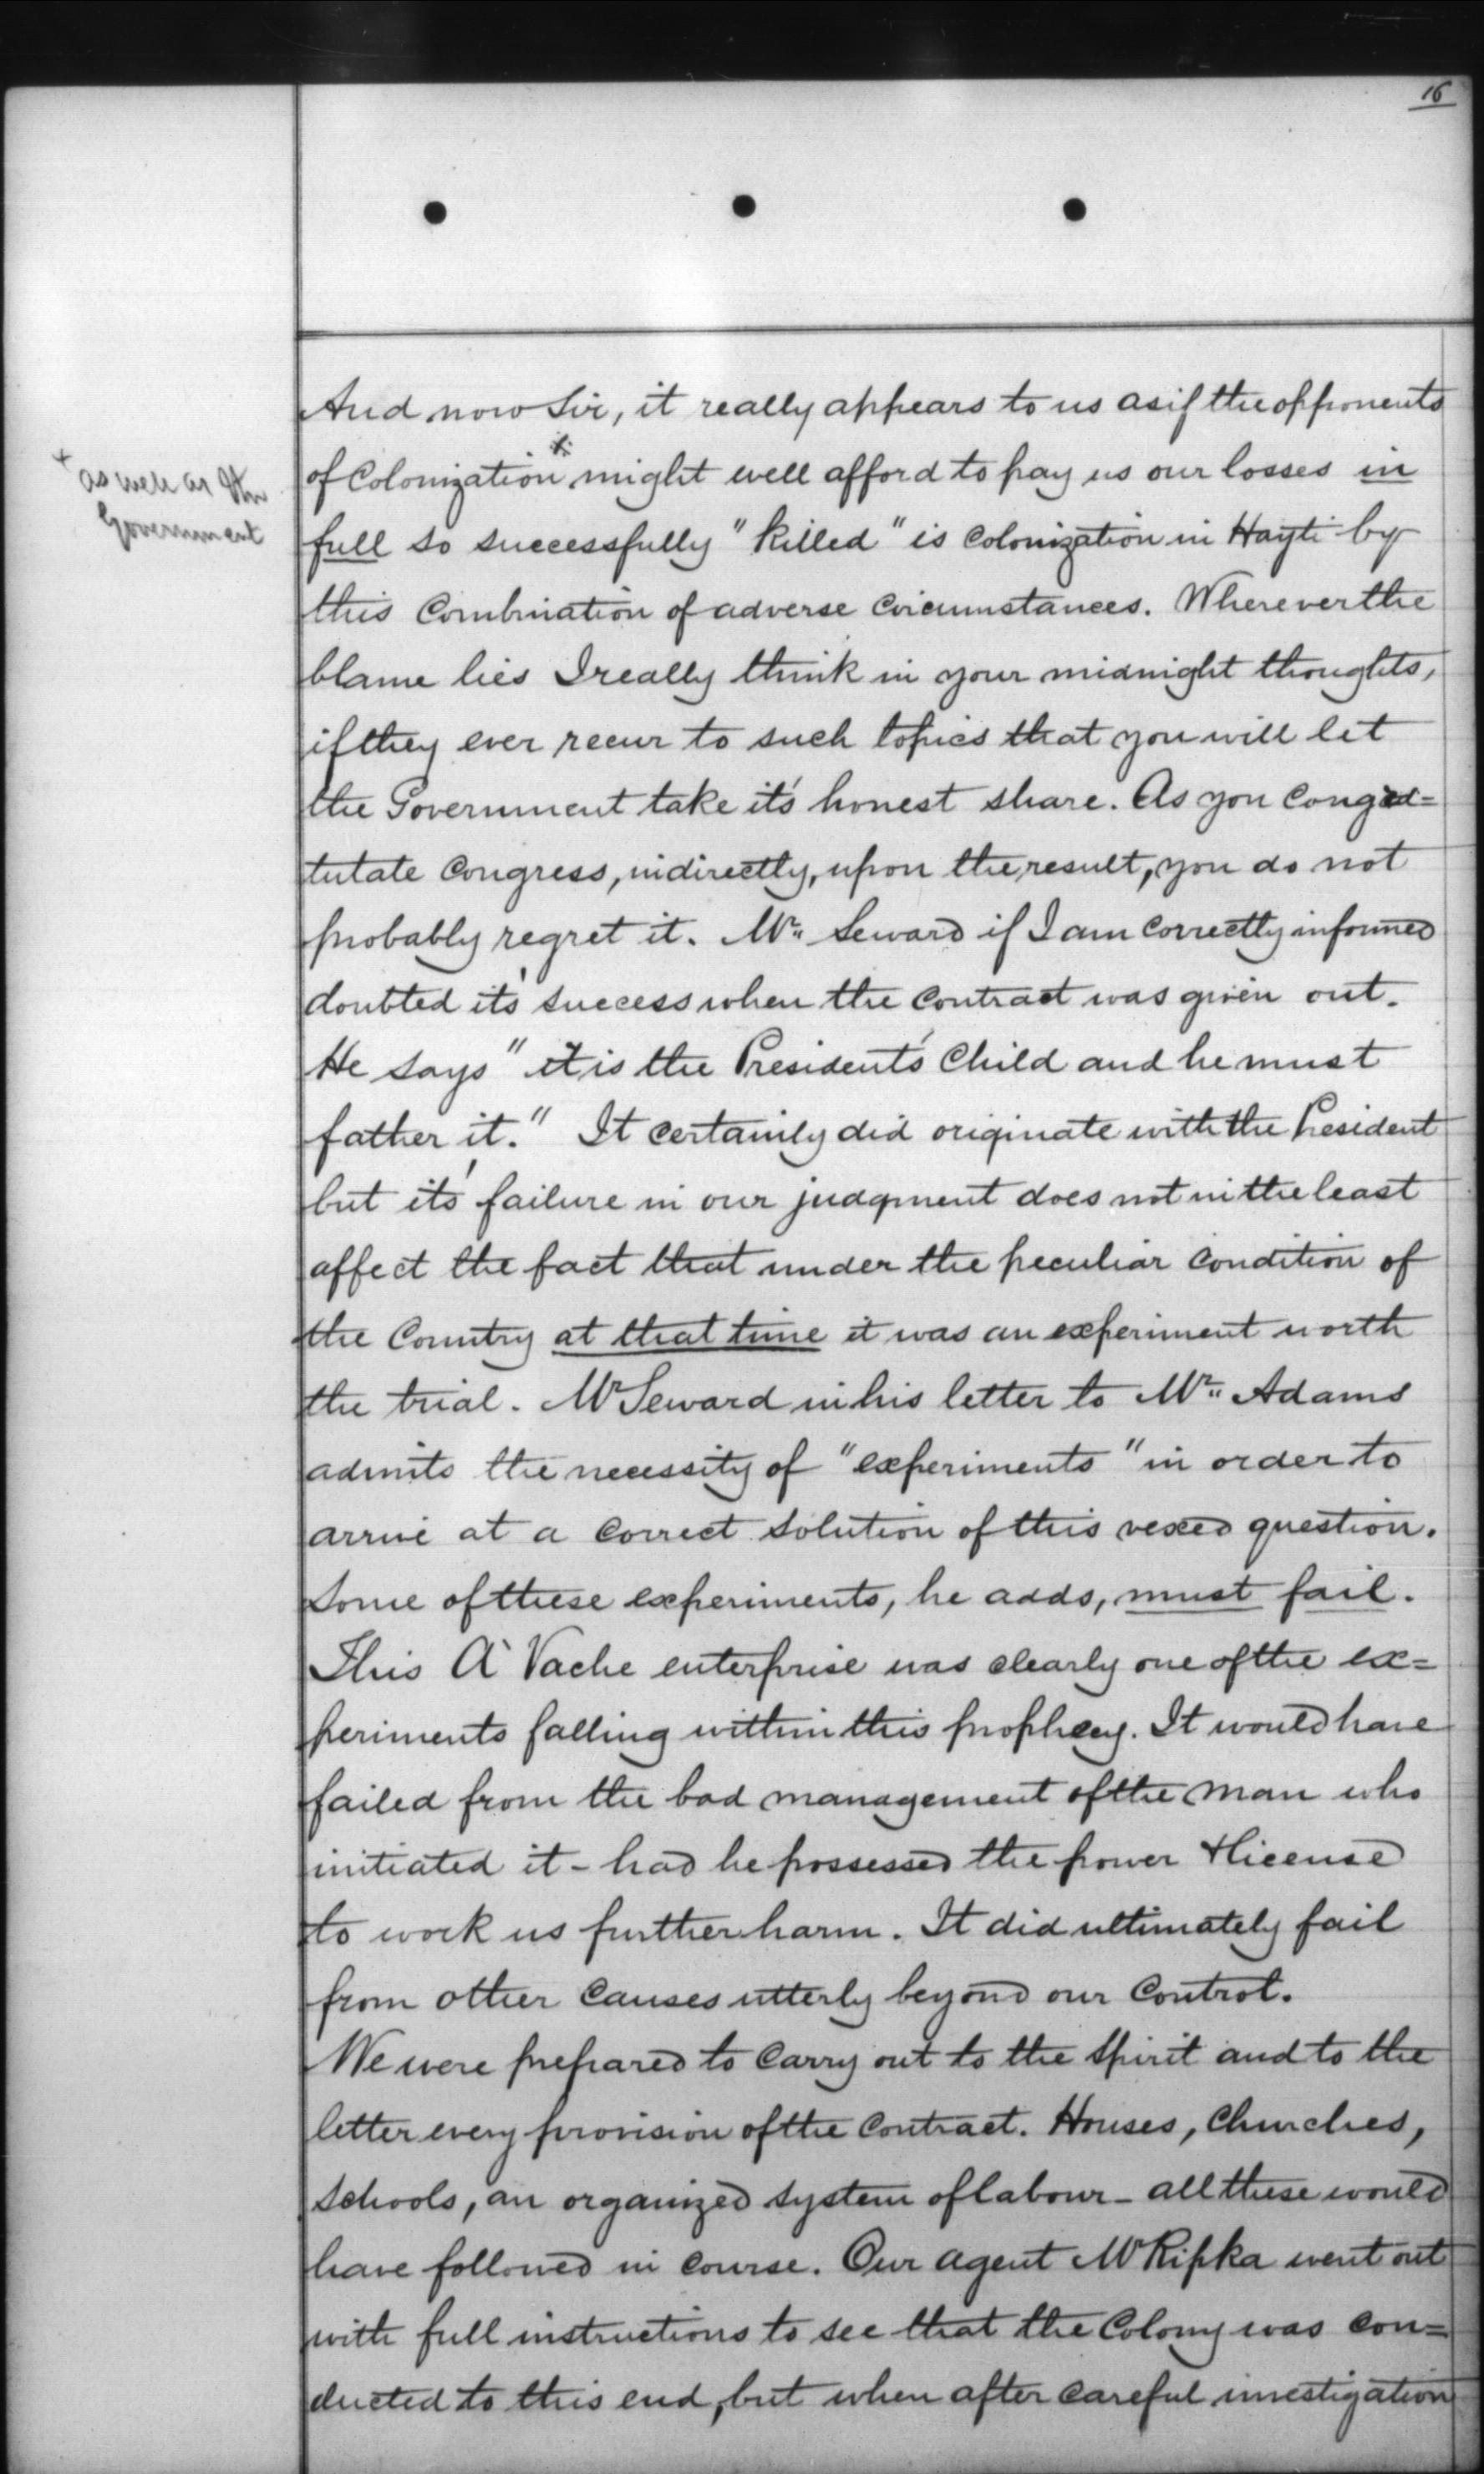 16
And now Sir, it really appears to us as if the opponents
of Colonization + might well afford to pay us our losses in
+ as well as the
Government
full so successfully "killed" is Colonization in Hayti by
this Combination of adverse Circumstances. Wherever the
blame lies I really think in your midnight thoughts,
if they ever recur to such topics that you will let
the Government take it's honest share. As you Congra=
tulate Congress, indirectly, upon the result, you do not
probably regret it. Mr. Seward if I am Correctly informed
doubted it's success when the Contract was given out.
He says "it is the President's Child and he must
father it." It certainly did originate with the President
but it's failure in our judgment does not in the least
affect the fact that under the peculiar Condition of
the Country at that time it was an experiment worth
the trial. Mr Seward in his letter to Mr. Adams
admits the necessity of "experiments" in order to
arrive at a Correct solution of this vexed question.
Some of these experiments, he adds, must fail.
This A' Vache enterprise was clearly one of the ex=
periments falling within this prophecy. It would have
failed from the bad management of the man who
initiated it - had he possessed the power & license
to work us further harm. It did ultimately fail
from other Causes utterly beyond our Control.
We were prepared to Carry out to the Spirit and to the
letter every provision of the Contract. Houses, Churches,
Schools, an organized system of labour - all these would
have followed in Course. Our agent Mr Ripka went out
with full instructions to see that the Colony was Con=
ducted to this end, but when after Careful investigation